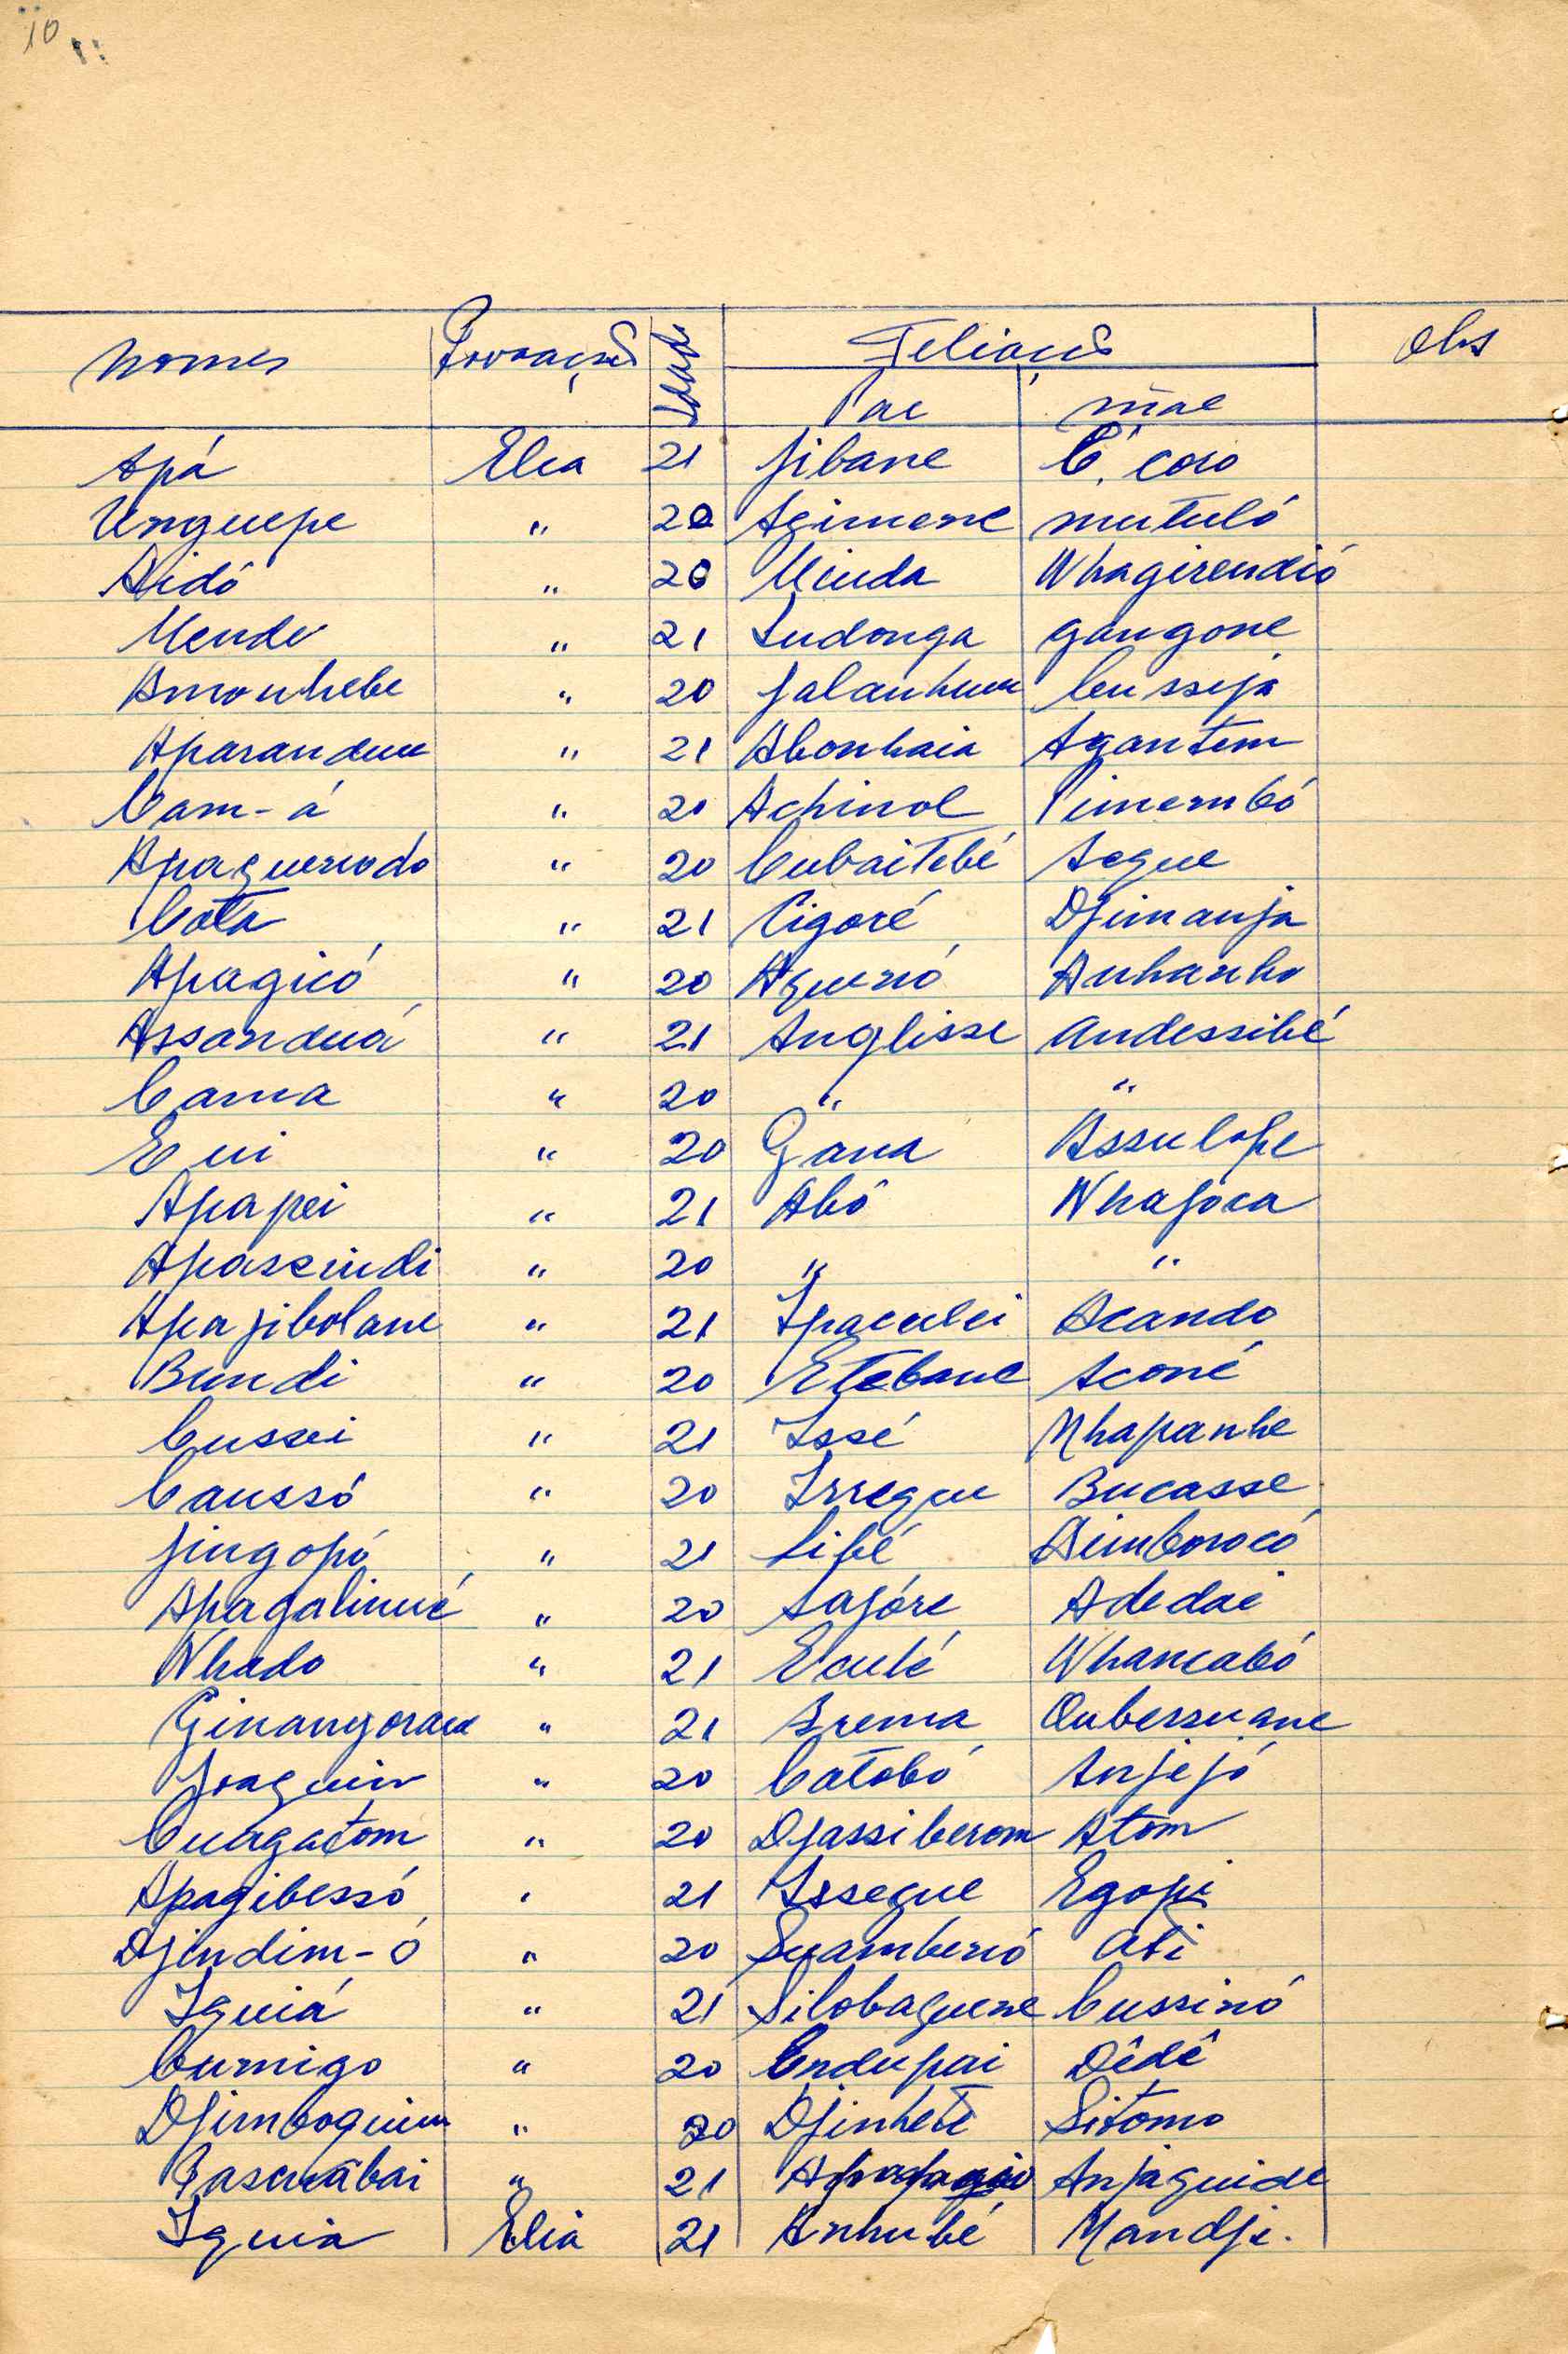 10
Nomes Povoação Idade Feliação Obs
Pae mãe
Apá Elia 21 Jibane C. coro
Unguepe " 20 Agimene mutuló
Aidô " 20 Miuda Nhagirendió
Mende " 21 Indonga gaugone
Amonhebe " 20 Jalanhum Cusseja
Aparandum " 21 Abonhaia Agantem
Cam-á " 21 Achinol Pimembó
Apaguenodo " 20 Cubaitebé Aegue
Cota " 21 Cigoré Djimanja
Apagicó " 20 Aguenó Anhanho
Assanduá " 21 Anglisse Andessibé
Cama " 20 " "
E ui " 20 Gana Assulope
Apapei " 21 Abó Nhajoca
Apaseindi " 20 " "
Apajibolane " 21 Ipaculei Acando
Bundi " 20 Etebane Aconé
Cussei " 21 Issé Nhapanhe
Caussó " 20 Irregue Bucasse
Jingopó " 21 Libé Aimborocó
Apagalinué " 20 Sajóre Adedai
Nhado " 21 Eculé Nhancabó
Ginangorane " 21 Brema Qubessuane
Joaquim " 20 Catobó Anjejó
Cuagatom " 20 Djassiberom Atom
Apagibessó " 21 Issegue Egopi
Djendim-ó " 20 Suambenó Ati
Iguiá " 21 Silobaguene Cussinó
Curnigo " 20 Endupai Dêdê
Djimboquim " 20 Djinhete Sitomo
Bascuabai " 21 Anjaguide
Iguia Elia 21 Anhubé Mandji.